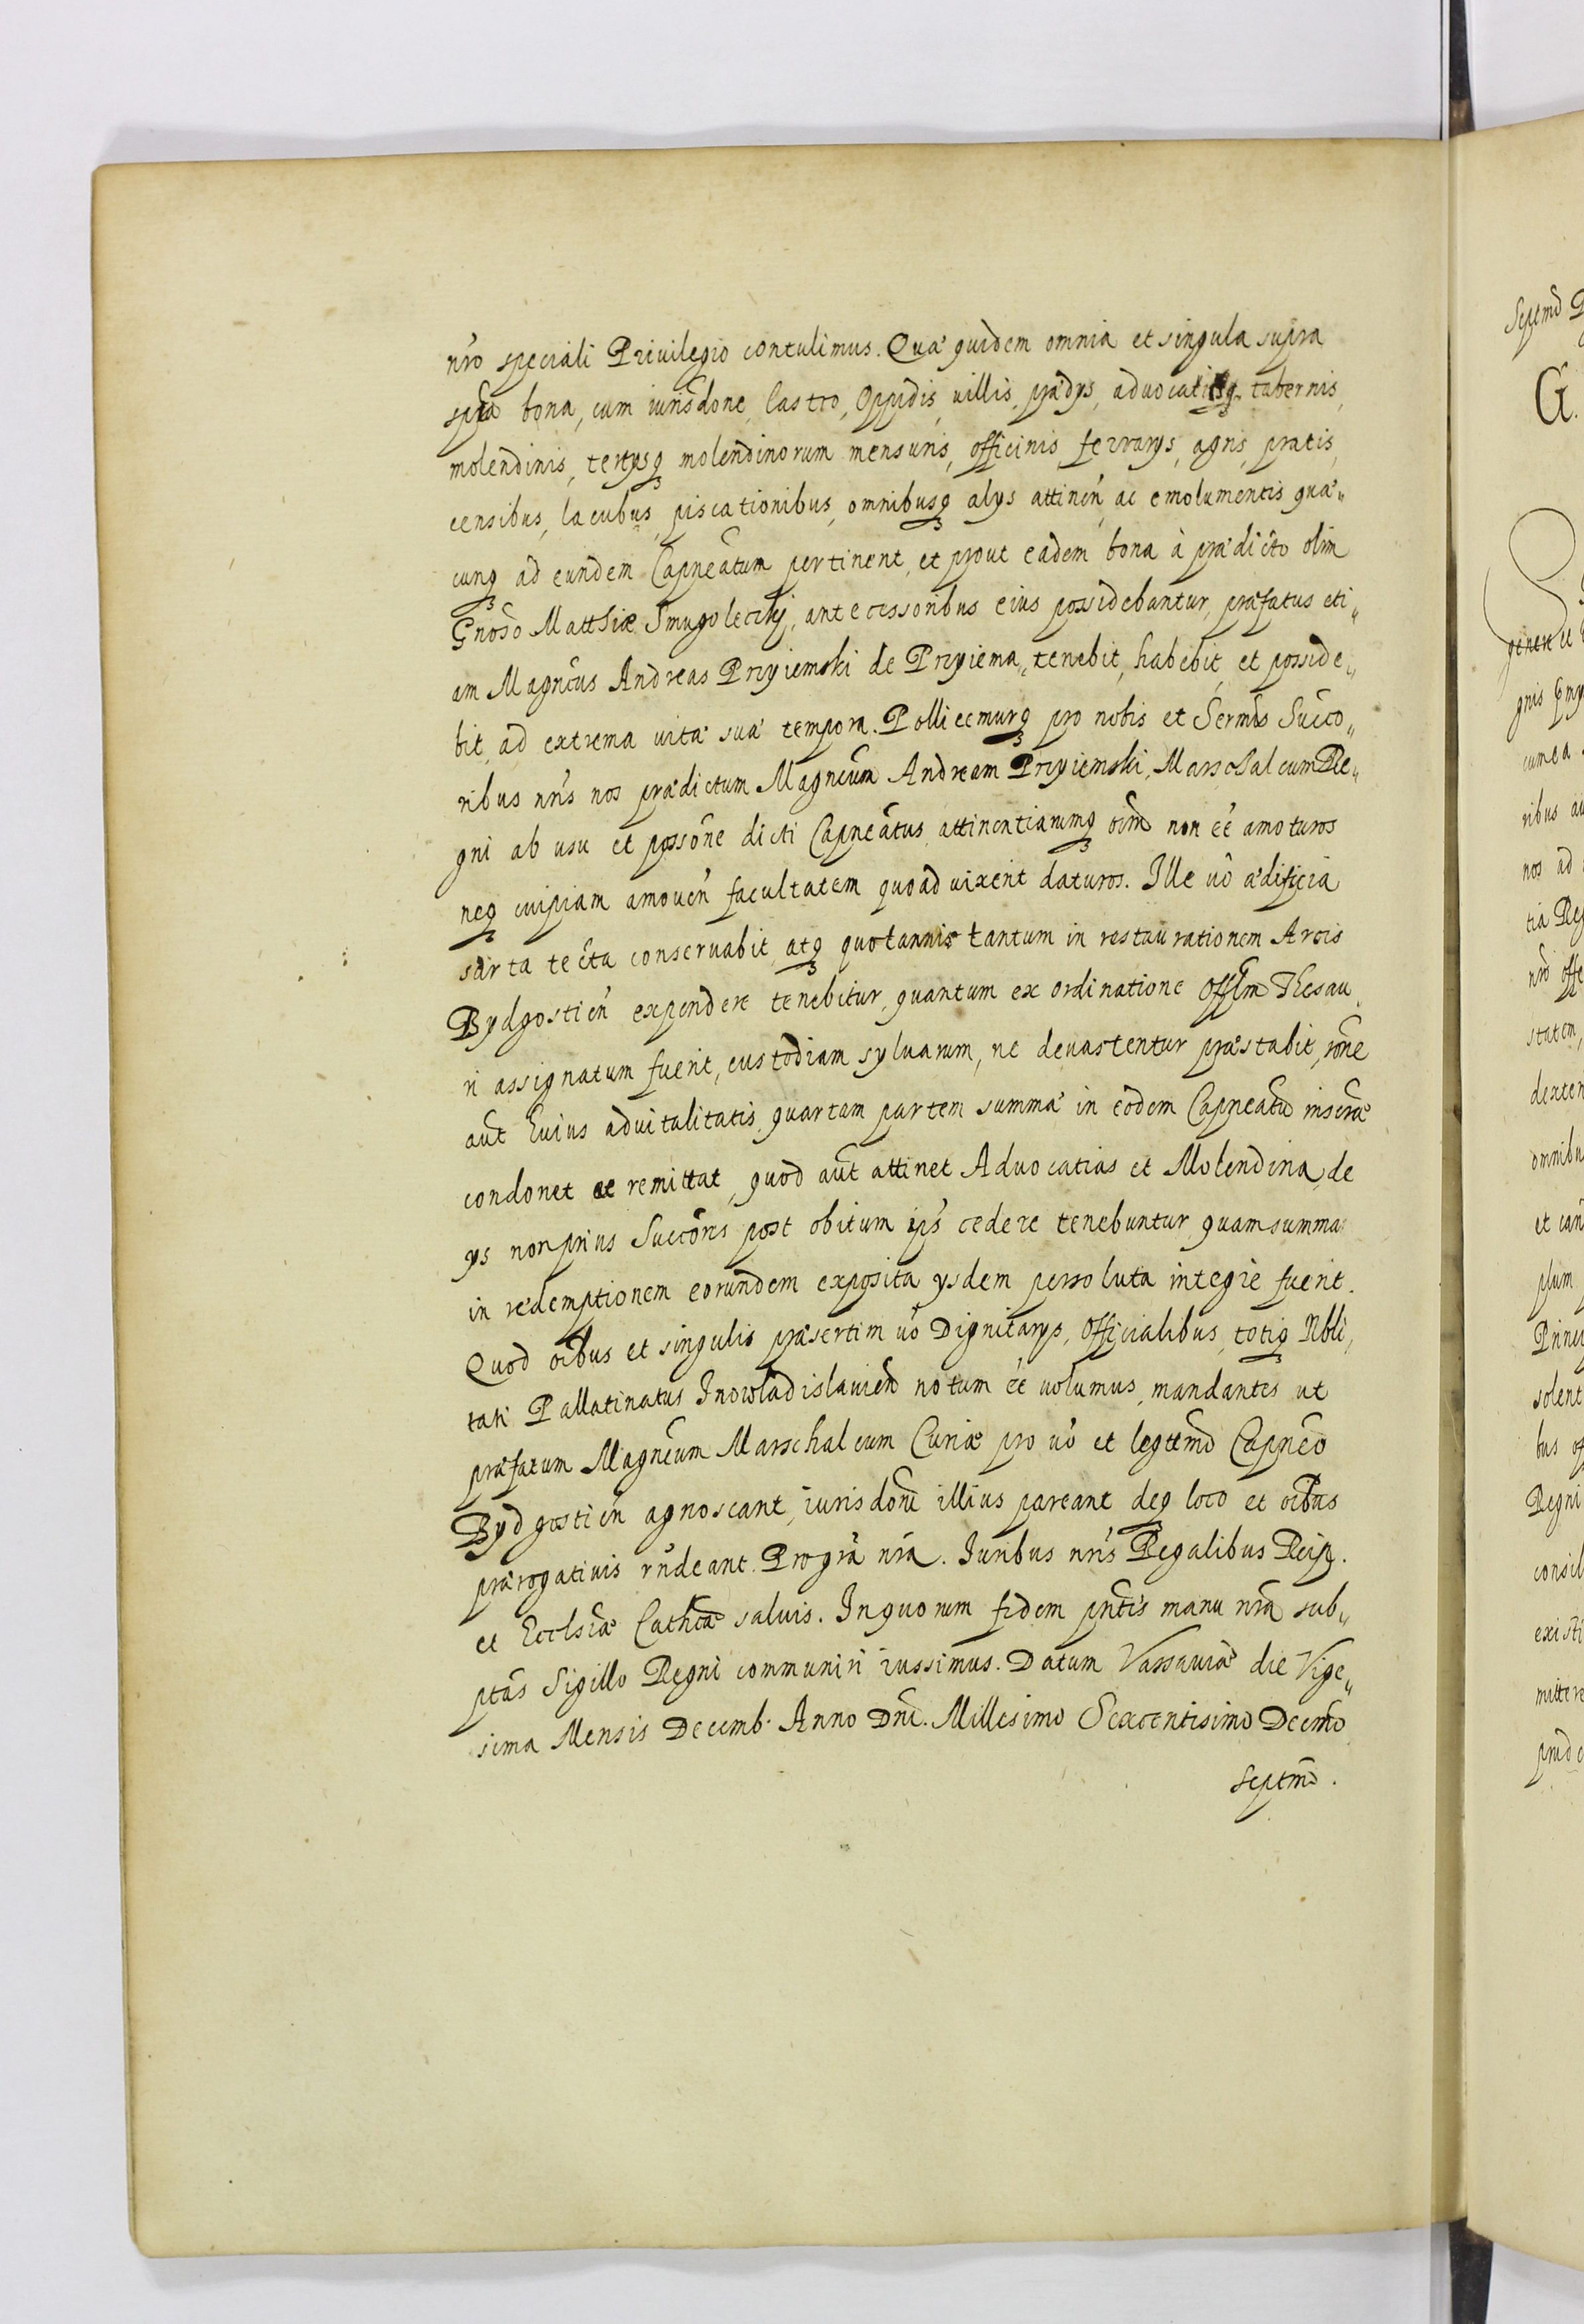 nro speciali Priuilegio contulimus. Quæ quidem omnia et singula supra
spta bona, cum iurisdone, Castro, Oppidis, uillis, prædys, aduocatisq tabernis,
molendinis, tertysq molendinorum mensuris, officinis ferrarys, agris, pratis,
censibus, lacubus, piscationibus, omnibusq alys attinen, ac emolumentis quæ„
cunq ad eundem Capneatum pertinent, et prout eadem bona à prædicto olim
Gnoso Matthia Smugolecikj, antecessoribus eius possidebantur, præfatus eti„
am Magncus Andreas Przyiemski de Przyiema, tenebit, habebit, et posside„
bit, ad extrema uitæ suæ tempora. Pollicemurq pro nobis et Sermis Succo„
ribus nris nos prædictum Magncum Andream Przyiemski, Marschalcum Re„
gni ab usu et possone dicti Capneatus, attinentiarumq oim non ee amoturos
neq cuipiam amouen facultatem quoad uixerit daturos. Ille uo ædificia
sarta tecta conseruabit, atq quotannis tantum in restaurationem Arcis
Bydgostien expendere tenebitur, quantum ex ordinatione Offlm Thesau
ri assignatum fuerit, custodiam syluarum, ne deuastentur præstabit, rone
aut huius aduitalitatis, quartam partem summæ in eodem Capneatu inscræ
condonet ac remittat, quod aut attinet Aduocatias et Molendina, de
ys non prius Succores post obitum ips cedere tenebuntur, quam summa
in redemptionem eorundem exposita ysdem persoluta integre fuerit.
Quod oibus et singulis præsertim uo Dignitarys, Officialibus, totiq Nbli„
tati Pallatinatus Inowladislauien notum ee uolumus, mandantes ut
præfatum Magncum Marschalcum Curiæ pro uo et legtimo Capneo
Bydgostien agnoscant, iurisdoni illius pareant, deq loco et oibus
prærogatiuis rndeant. Pro gra nra. Iuribus nris Regalibus Reip.
et Ecclsiæ Cathcæ saluis. In quorum fidem pntis manu nra sub„
ptas Sigillo Regni communiri iussimus. Datum Varsauiæ die Vige„
sima Mensis Decemb. Anno Dni. Millesimo Sexcentisimo Decimo
Septmo.
Septmo
G.
genere
gnis
cumea
ribus
nos ad
tia Reg
nro offe
statem,
dexter
omnibu
et
plum
solent
bus
Regni
consil
existi
mittere